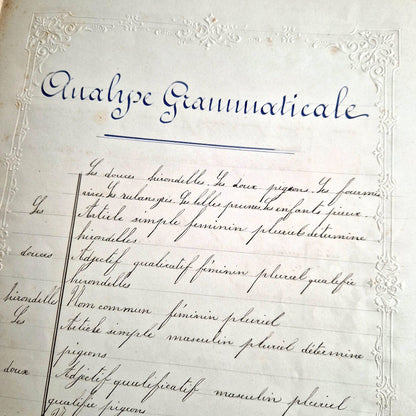 Analyse Grammaticale
Les douces hirondelles. Les doux pigeons. Les fourmi
Les belles prunes. Les enfants pieux.
Les Article simple féminin pluriel détermine
hirondelles
douces Adjectif qualicatif féminin pluriel qualifie
hirondelles
hirondelle Nom commun féminin pluriel
Les Article simple masculin pluriel détermine
pigeons
doux Adjectif qualificatif masculin pluriel
qualifie pigeons